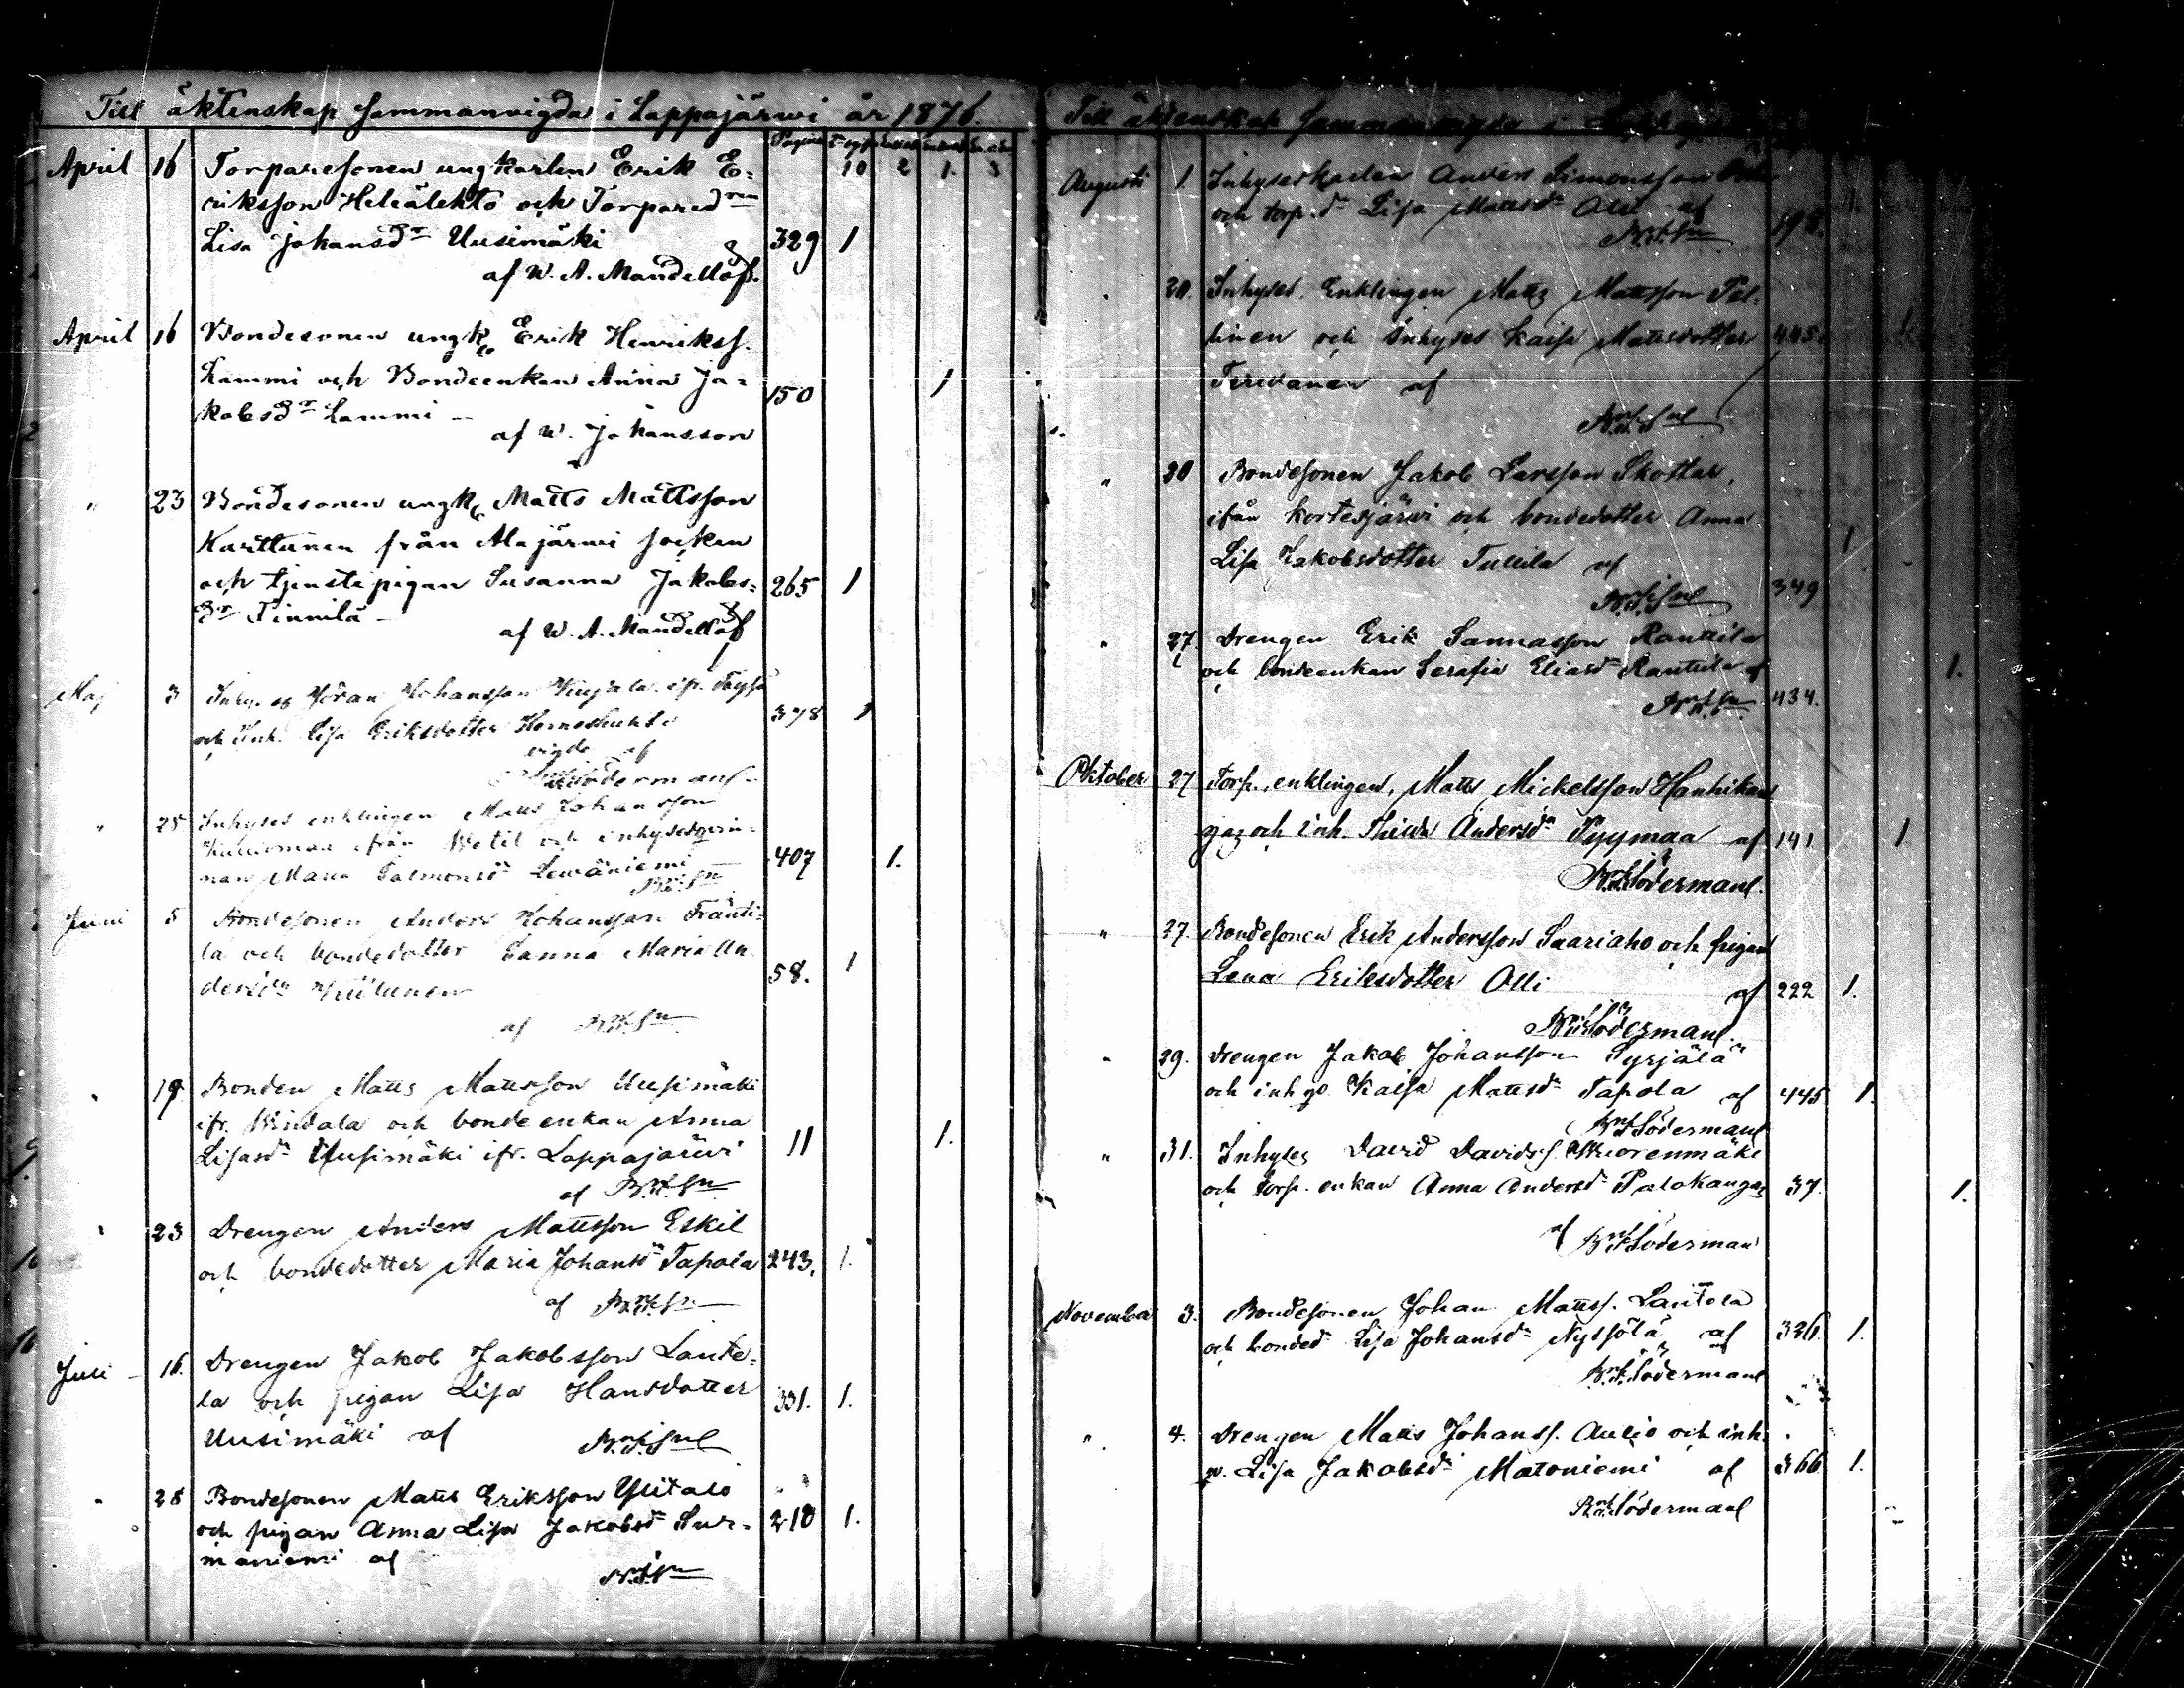 Till äktenskap sammanvigda i Lappajärwi år 1876.
Pagina
10 2 1. 3
April 16 Torparesonen ungkarlen Erik E-
riksson Heliälehto och Torpared:rn
Lisa Johansd:r Uusimäki 329 1
af W. A. Mandellöf.
April 16 Bondesonen ungk. Erik Henrikss.
Lammi och Bondeenkan Anna Ja-
kobsd:r Lammi — 150 1
af W. Johansson
" 23 Bondesonen ungk. Matts Mattsson
Karttunen från Alajärwi socken
och tjenstepigan Susanna Jakobs- 265 1
d:r Finnilä —
af W. A. Mandellöf
Maj 3 Johansson
och Inh. Lisa Eriksdotter 378 1
vigde af
Söderman
" 25 Inhyses enklingen Matts Johansson
ifrån Wetil och inhysesqvin-
nan Maria Salmonsd:r Lewäniemi 407 1.
Juni 5 Bondesonen Anders Johansson Fränti-
lä och bondedotter Sanna Maria An-
dersd:r 58. 1
af
" 19 Bonden Matts Mattsson Uusimäki
ifr. Windala och bondeenkan Anna
Lisasd:r Uusimäki ifr. Lappajärwi 11 1.
af
" 23 Drengen Anders Mattsson Eskil
och bondedotter Maria Johansd:r Tapola 243. 1.
af
Juli 16. Drengen Jakob Jakobsson Laute-
la och pigan Lisa Hansdotter 331. 1.
Uusimäki af
" 28 Bondesonen Matts Eriksson Ylitalo
och pigan Anna Lisa Jakobsd:r Sur- 210 1.
maniemi af
Till äktenskap sammanvigda i
Augusti 1. Inhyseskarlen Anders Simonsson
och torp.d:r Lisa Mattsd:r Olli af 198.
" 20. Inhyses Enklingen Matts Mattsson Pel-
linen och Inhyses Kaisa Mattsdotter 445.
Terwanen af
" 20 Bondesonen Jakob Larsson Skottar,
ifrån Kortesjärwi och bondedotter Anna
Lisa Jakobsdotter Tullila af 1
349
" 27 Drengen Erik Sannasson Ranttila
och bondeenkan Serafia Eliasd:r Ranttila af 1.
434.
Oktober 27 Torp. enklingen, Matts Mickelsson Hanhikan-
gas och inh. Andersd:r Pyymaa af 141 1
Söderman.
" 27. Bondesonen Erik Andersson Saariaho och pigan
Lena Eriksdotter Olli af 222 1.
Söderman
" 29. Drengen Jakob Johansson Syrjälä
och inh. Kaisa Mattsd:r Tapola af 445 1.
Söderman
" 31. Inhyses David Davidss. Wuorenmäki
och torp. enkan Anna Andersd:r Palokangas 37. 1.
af Söderman
November 3. Bondesonen Johan Mattss. Lautela
och bonded:r Lisa Johansd:r Nyssölä af 326. 1.
Söderman
" 4. Drengen Matts Johanss. Aulio och inh.
q. Lisa Jakobsd:r Matoniemi af 366 1.
Söderman